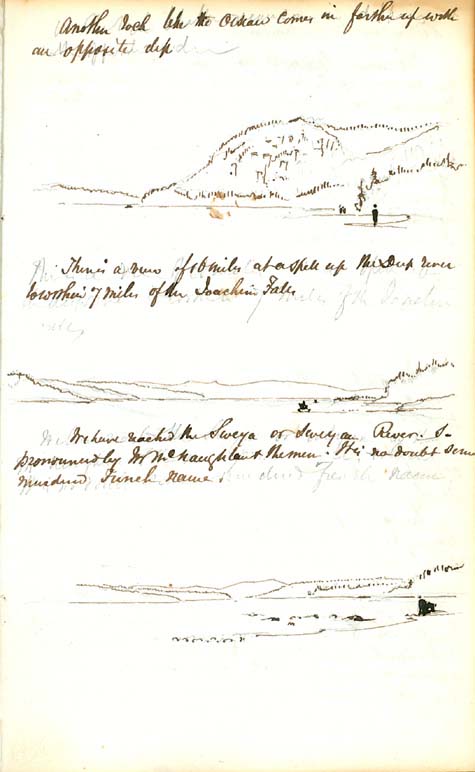 Another rock like the Oiseau comes in farther up with
an opposite dip
There is a view of 16 miles at a spell up the Deep river
to within 7 miles of the Joachim Falls
We have reached the Sweya or Sweyan River. So
pronounced by Mr McNaughton & the men. It is no doubt some
murdered French name.